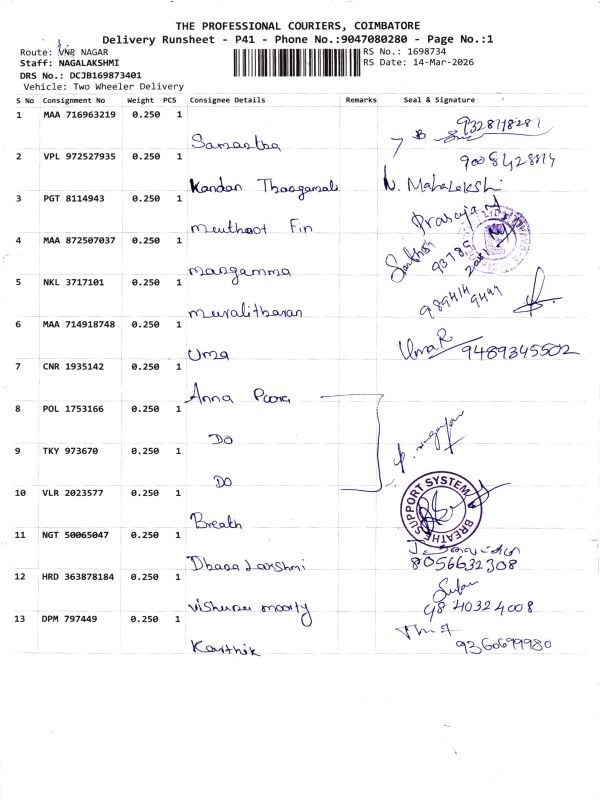 THE PROFESSIONAL COURIERS, COIMBATORE
Delivery Runsheet - P41 - Phone No.:9047080280 - Page No.:1
Route: VNR NAGAR
RS No.: 1698734
Staff: NAGALAKSHMI
RS Date: 14-Mar-2026
DRS No.: DCJB169873401
Vehicle: Two Wheeler Delivery
S No Consignment No Weight PCS Consignee Details Remarks Seal & Signature
1 MAA 716963219 0.250 1
2 VPL 972527935 0.250 1
Kandan N. Mahalakshi
3 PGT 8114943 0.250 1
Fin
4 MAA 872507037 0.250 1
mangamma
5 NKL 3717101 0.250 1
muralitharan
6 MAA 714918748 0.250 1
Uma UmaR 9489345502
7 CNR 1935142 0.250 1
Anna
8 POL 1753166 0.250 1
DO
9 TKY 973670 0.250 1
DO
10 VLR 2023577 0.250 1
Breath BREATHE SUPPORT SYSTEM
11 NGT 50065047 0.250 1
8056632308
12 HRD 363878184 0.250 1
moorty 9840324008
13 DPM 797449 0.250 1
Karthik 9360699980